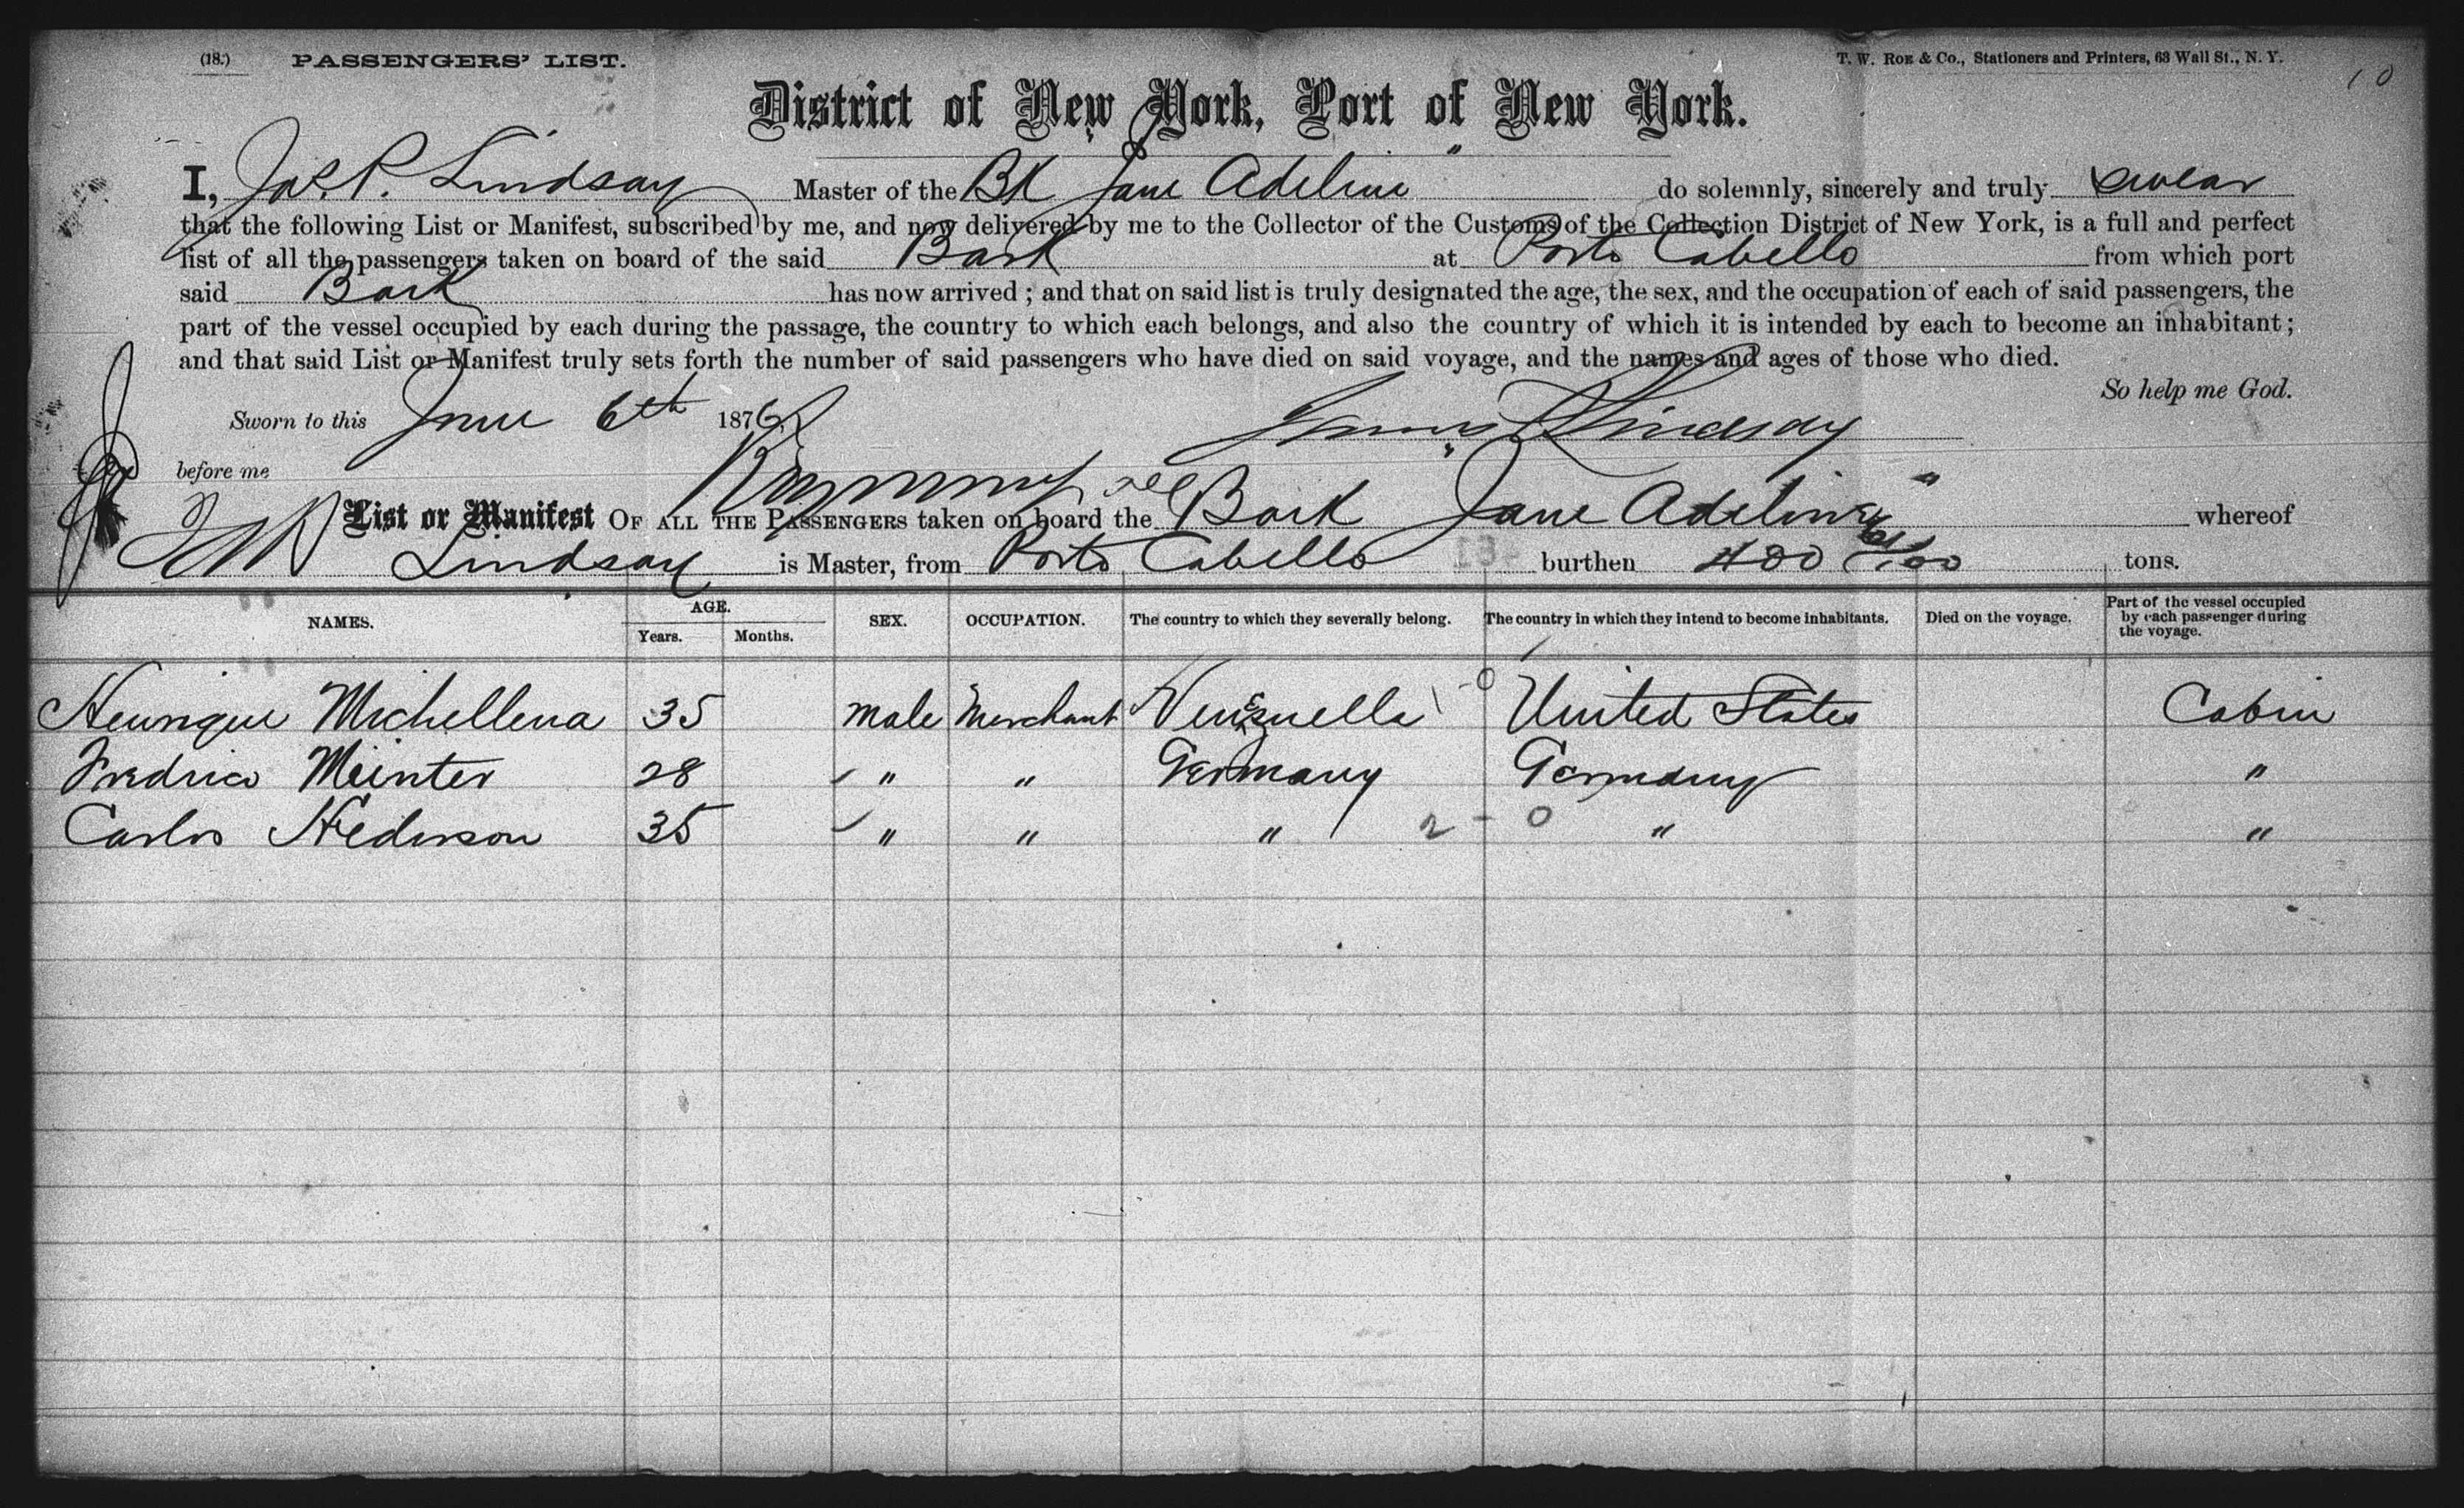 (18.) PASSENGERS' LIST. T. W. ROE & Co., Stationers and Printers, 63 Wall St., N. Y. 10
District of New York, Port of New York.
I, Jas. P. Lindsay Master of the Bk "Jane Adeline" do solemnly, sincerely and truly swear
that the following List or Manifest, subscribed by me, and now delivered by me to the Collector of the Customs of the Collection District of New York, is a full and perfect
list of all the passengers taken on board of the said Bark at Porto Cabello from which port
said Bark has now arrived ; and that on said list is truly designated the age, the sex, and the occupation of each of said passengers, the
part of the vessel occupied by each during the passage, the country to which each belongs, and also the country of which it is intended by each to become an inhabitant ;
and that said List or Manifest truly sets forth the number of said passengers who have died on said voyage, and the names and ages of those who died.
So help me God.
Sworn to this June 6th 1876 James P Lindsay
before me
List or Manifest OF ALL THE PASSENGERS taken on board the Bark "Jane Adeline" whereof
Lindsay is Master, from Porto Cabello burthen 400 61/100 tons.
NAMES. AGE. Years. Months. SEX. OCCUPATION. The country to which they severally belong. The country in which they intend to become inhabitants. Died on the voyage. Part of the vessel occupied by each passenger during the voyage.
Henrique Michellena 35 male Merchant Venezuella - 0 United States Cabin
Fredrico Meinter 28 " " Germany Germany "
Carlos Hederson 35 " " " 2 - 0 " "